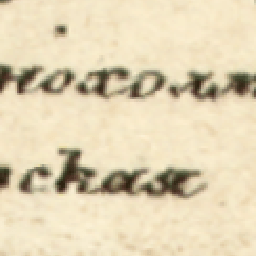 нохолм
ская